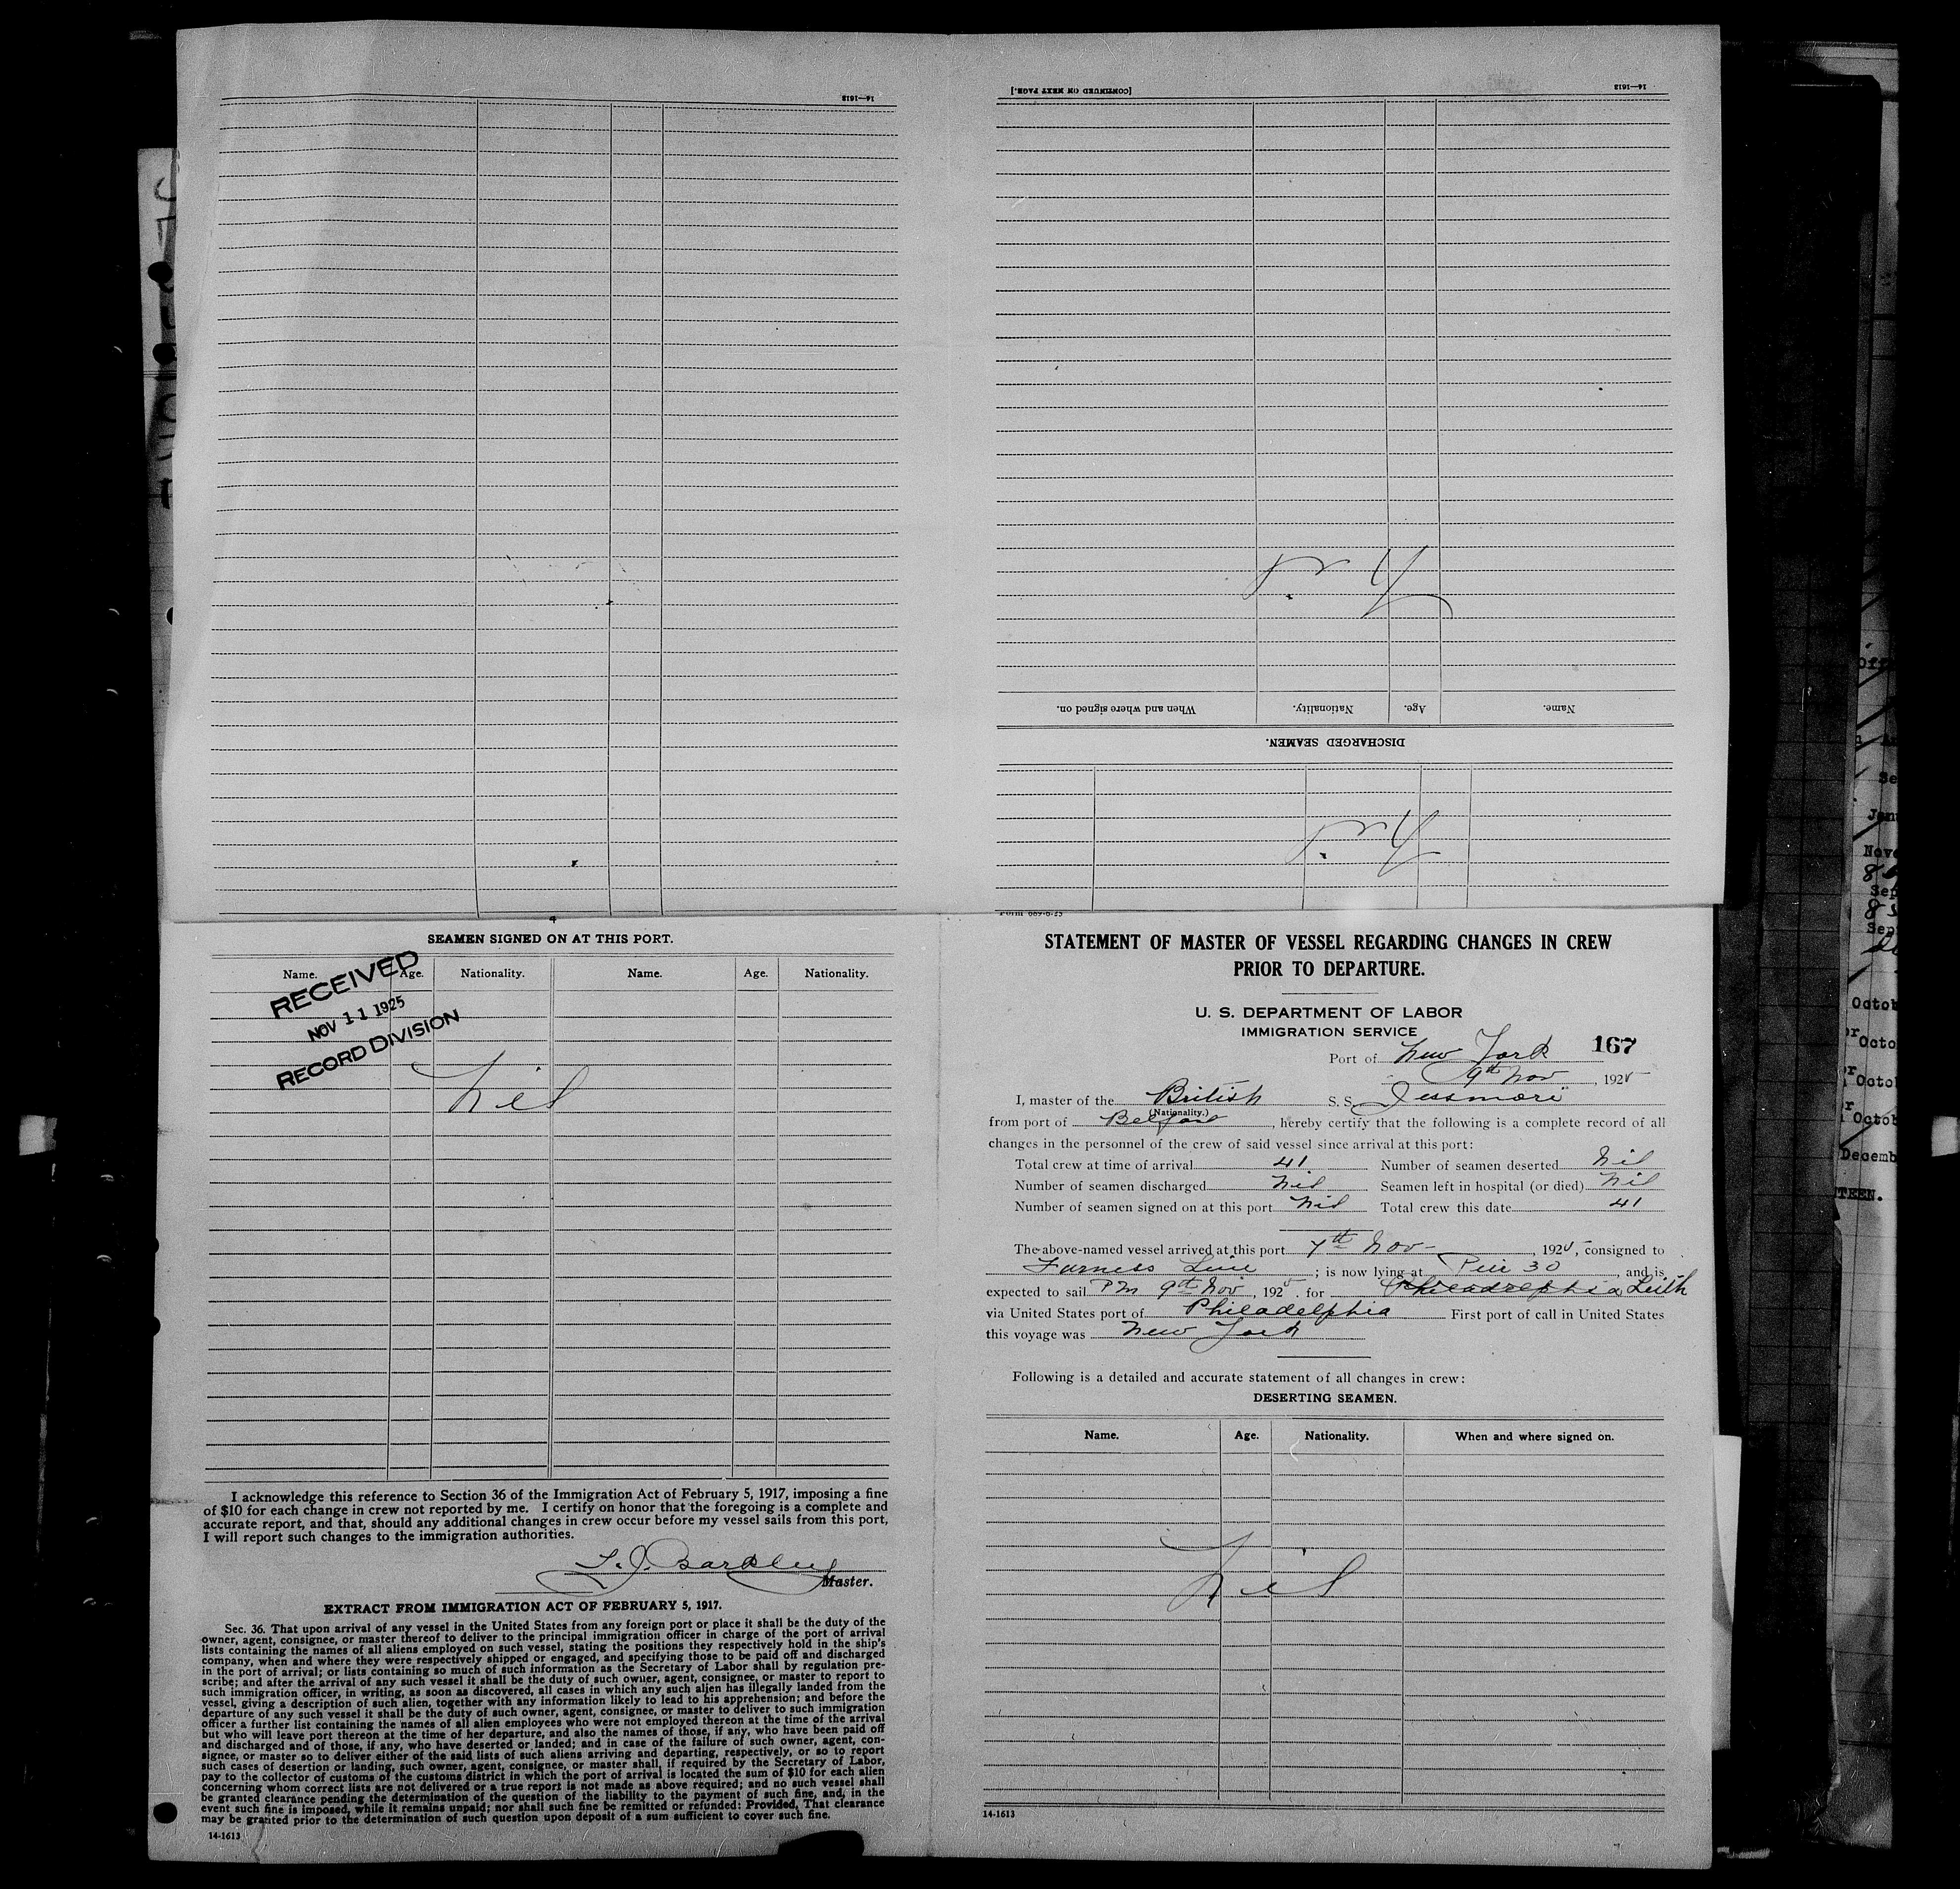 14—1613
[CONTINUED ON NEXT PAGE.]
14—1613
Nil
Name. Age. Nationality. When and where signed on.
DISCHARGED SEAMEN.
Nil
4
SEAMEN SIGNED ON AT THIS PORT.
Name. Age. Nationality. Name. Age. Nationality.
RECEIVED
NOV 11 1925
RECORD DIVISION
Nil
I acknowledge this reference to Section 36 of the Immigration Act of February 5, 1917, imposing a fine
of $10 for each change in crew not reported by me. I certify on honor that the foregoing is a complete and
accurate report, and that, should any additional changes in crew occur before my vessel sails from this port,
I will report such changes to the immigration authorities.
T. J. Barkley
Master.
EXTRACT FROM IMMIGRATION ACT OF FEBRUARY 5, 1917.
Sec. 36. That upon arrival of any vessel in the United States from any foreign port or place it shall be the duty of the
owner, agent, consignee, or master thereof to deliver to the principal immigration officer in charge of the port of arrival
lists containing the names of all aliens employed on such vessel, stating the positions they respectively hold in the ship's
company, when and where they were respectively shipped or engaged, and specifying those to be paid off and discharged
in the port of arrival; or lists containing so much of such information as the Secretary of Labor shall by regulation pre-
scribe; and after the arrival of any such vessel it shall be the duty of such owner, agent, consignee, or master to report to
such immigration officer, in writing, as soon as discovered, all cases in which any such alien has illegally landed from the
vessel, giving a description of such alien, together with any information likely to lead to his apprehension; and before the
departure of any such vessel it shall be the duty of such owner, agent, consignee, or master to deliver to such immigration
officer a further list containing the names of all alien employees who were not employed thereon at the time of the arrival
but who will leave port thereon at the time of her departure, and also the names of those, if any, who have been paid off
and discharged and of those, if any, who have deserted or landed; and in case of the failure of such owner, agent, con-
signee, or master so to deliver either of the said lists of such aliens arriving and departing, respectively, or so to report
such cases of desertion or landing, such owner, agent, consignee, or master shall, if required by the Secretary of Labor,
pay to the collector of customs of the customs district in which the port of arrival is located the sum of $10 for each alien
concerning whom correct lists are not delivered or a true report is not made as above required; and no such vessel shall
be granted clearance pending the determination of the question of the liability to the payment of such fine, and, in the
event such fine is imposed, while it remains unpaid; nor shall such fine be remitted or refunded: Provided, That clearance
may be granted prior to the determination of such question upon deposit of a sum sufficient to cover such fine.
14-1613
STATEMENT OF MASTER OF VESSEL REGARDING CHANGES IN CREW
PRIOR TO DEPARTURE.
U. S. DEPARTMENT OF LABOR
IMMIGRATION SERVICE
Port of New York 167
9th Nov, 1925
I, master of the British S. S. Jessmore
(Nationality.)
from port of Belfast, hereby certify that the following is a complete record of all
changes in the personnel of the crew of said vessel since arrival at this port:
Total crew at time of arrival 41 Number of seamen deserted Nil
Number of seamen discharged Nil Seamen left in hospital (or died) Nil
Number of seamen signed on at this port Nil Total crew this date 41
The above-named vessel arrived at this port 7th Nov, 1925, consigned to
Furness Line; is now lying at Pier 30, and is
expected to sail PM 9th Nov, 1925. for Philadelphia Leith
via United States port of Philadelphia First port of call in United States
this voyage was New York
Following is a detailed and accurate statement of all changes in crew:
DESERTING SEAMEN.
Name. Age. Nationality. When and where signed on.
Nil
14-1613